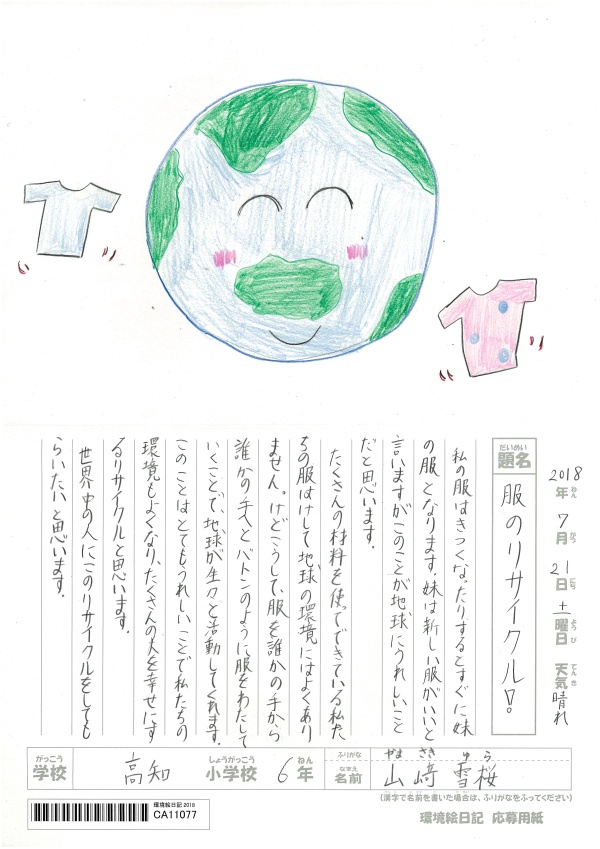 2018年ねん7月がつ21日にち土曜日ようび 天気てんき晴れ
だいめい
題名
服のリサイクル!
私の服はきつくなったりするとすぐに妹
の服となります。妹は新しい服がいいと
言いますがこのことが地球にうれしいこと
だと思います。
たくさんの材料を使ってできている私た
ちの服はけして地球の環境にはよくあり
ません。けどこうして、服を誰かの手から
誰かの手へとバトンのように服をわたして
いくことで、地球が生々と活動してくれます。
このことはとてもうれしいことで私たちの
環境もよくなり、たくさんの人を幸せにす
るリサイクルと思います。
世界中の人にこのリサイクルをしても
らいたいと思います。
がっこう しょうがっこう ねん ふりがな やま さき ゆ ら
学校 高知 小学校 6年 なまえ 名前 山﨑雪桜
(漢字で名前を書いた場合は、ふりがなをふってください)
環境絵日記 2018
CA11077
環境絵日記 応募用紙